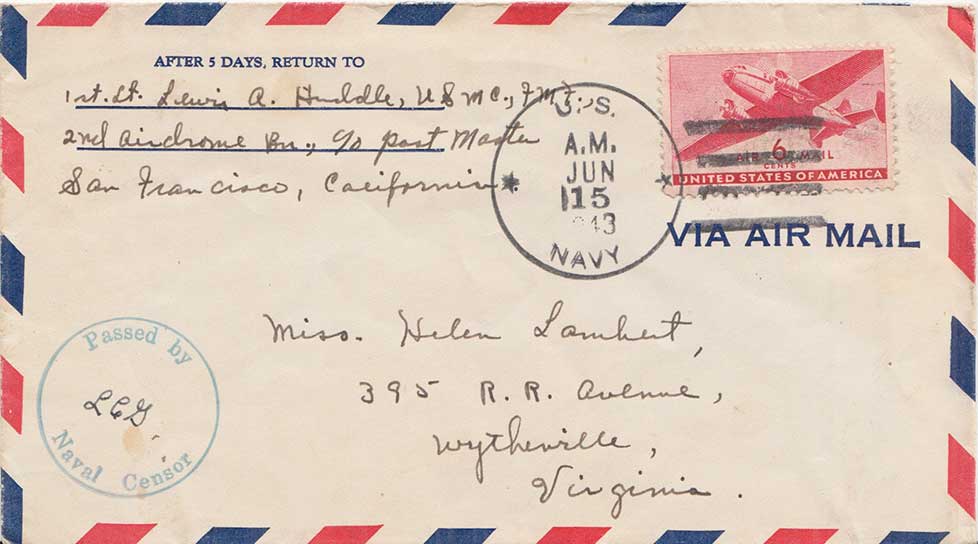 AFTER 5 DAYS, RETURN TO
1st. Lt. Lewis A. Huddle, USMC., FMF.,
2nd Airdrome Bn., c/o Post Master
San Francisco, California
U.S.
A.M.
JUN
15
943
NAVY
AIR 6 MAIL
CENTS
UNITED STATES OF AMERICA
VIA AIR MAIL
Passed by
Naval Censor
Miss. Helen Lambert,
395 R.R. Avenue,
Wytheville,
Virginia.